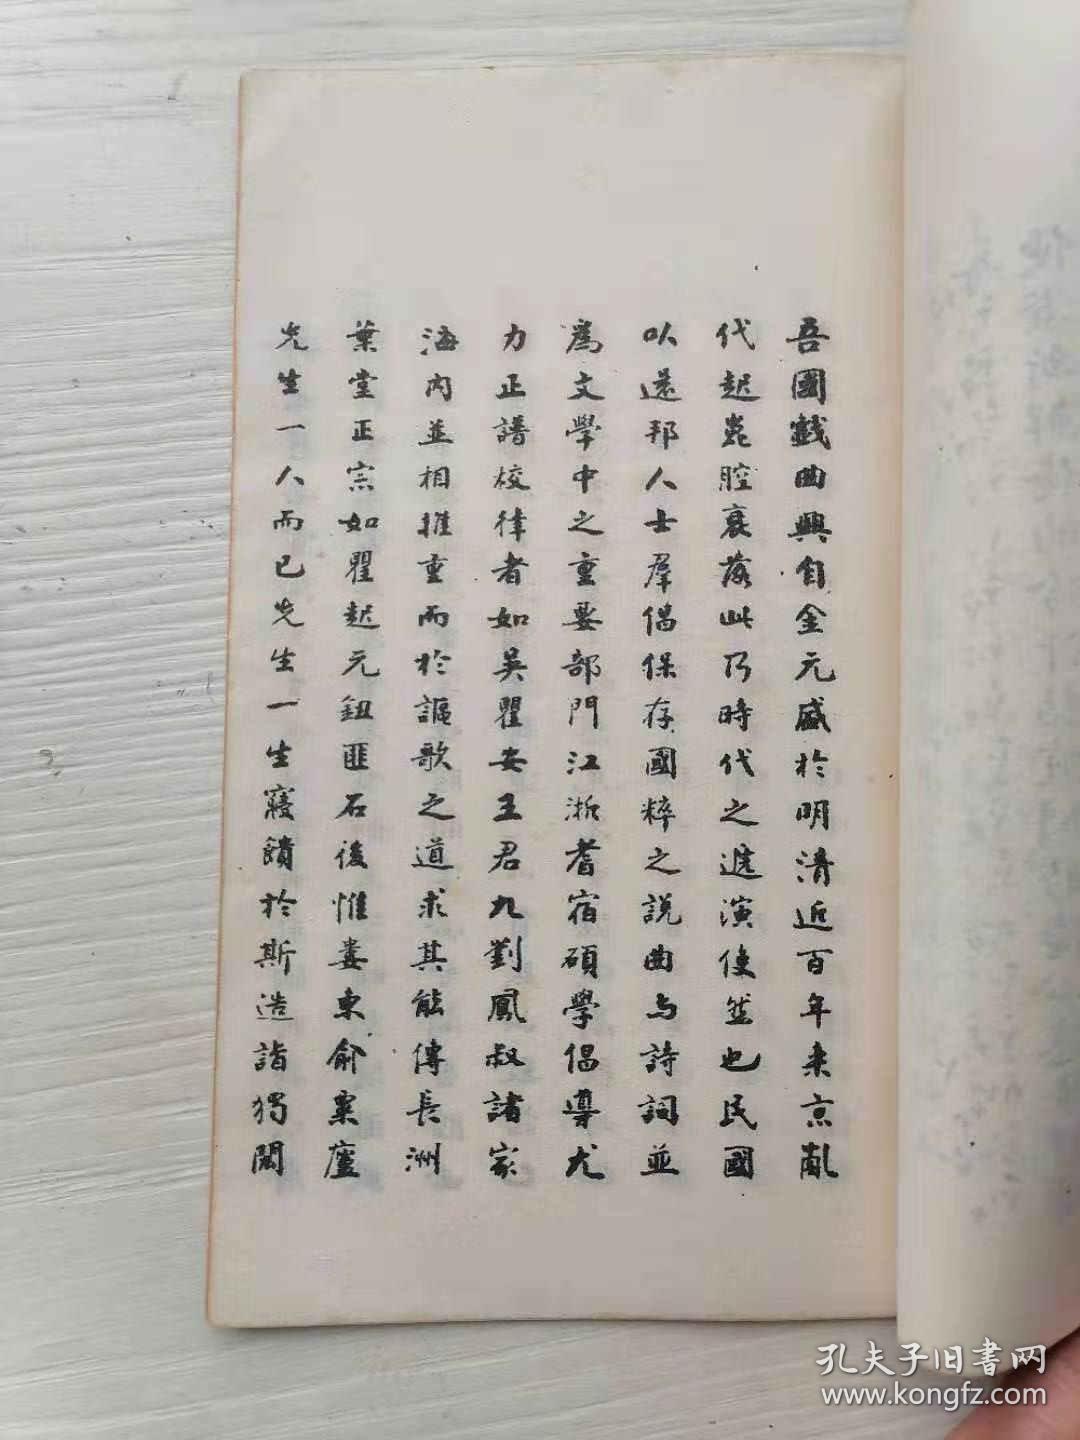 吾國戲曲興自金元盛於明清近百年来京亂
代起崑腔衰落此乃時代之遞演使然也民國
以還邦人士羣倡保存國粹之說曲与詩詞並
為文學中之重要部門江浙耆宿碩學倡導尤
力正譜校律者如吳瞿安王君九劉鳳叔諸家
海内並相推重而於謳歌之道求其能傳長洲
葉堂正宗如瞿起元鈕匪石後惟婁東俞粟廬
先生一人而已先生一生寢饋於斯造詣獨闢
孔夫子旧書网
www.kongfz.com